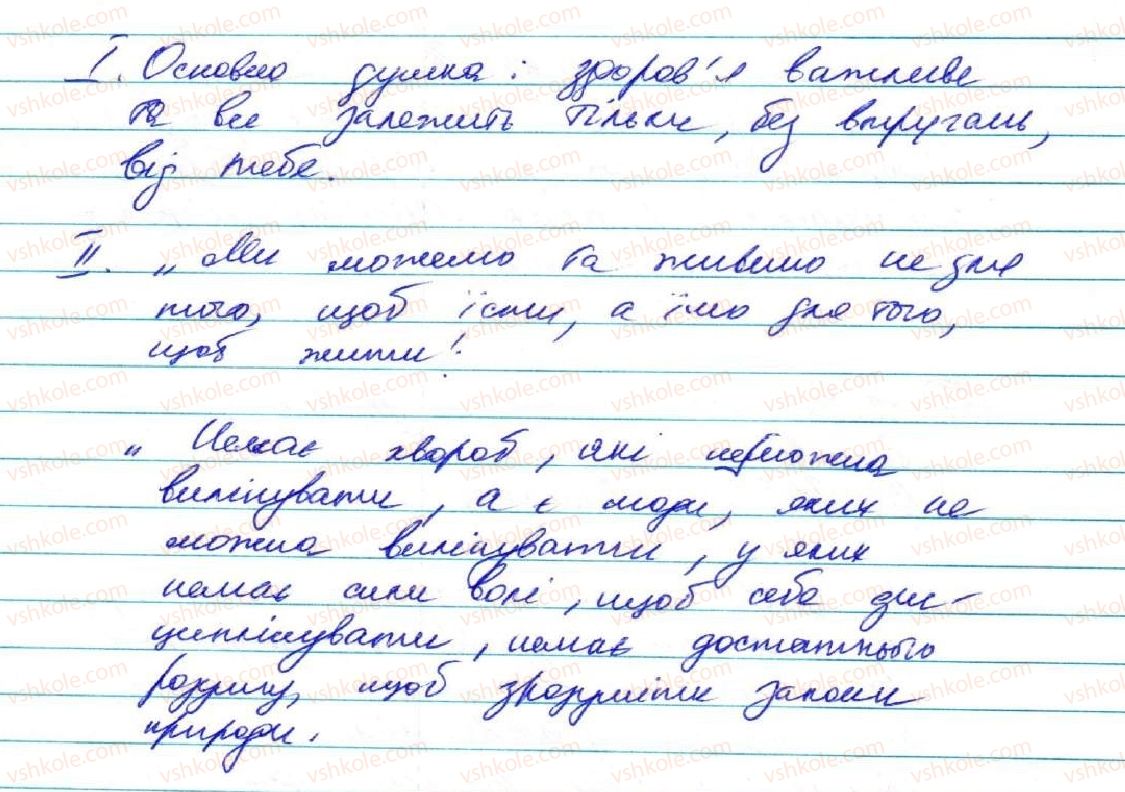 I. Основна думка: здоров'я важливе
та все залежить тільки, без викручань,
від тебе.
II. „Ми можемо та живимо не для
того, щоб їсти, а їмо для того,
щоб жити!
„Немає хвороб, які неможна
вилікувати, а є люди, яких не
можна вилікувати, у яких
немає сили волі, щоб себе дис-
циплінувати, немає достатнього
розуму, щоб зрозуміти закони
природи.
vshkole.com